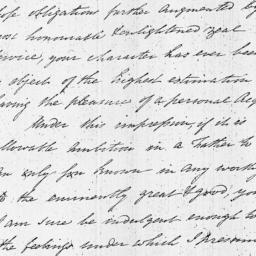 ose obligations further augmented by
ost honourable & enlightened zeal
ervice, your character has ever been
e object of the highest estimation
aving the pleasure of a personal Acq
Under this impression, if it is
llowable ambition in a Father to
an only son known in any worthy
to the eminently great & good, you
I am sure be indulgent enough to
the feelings under which I presum